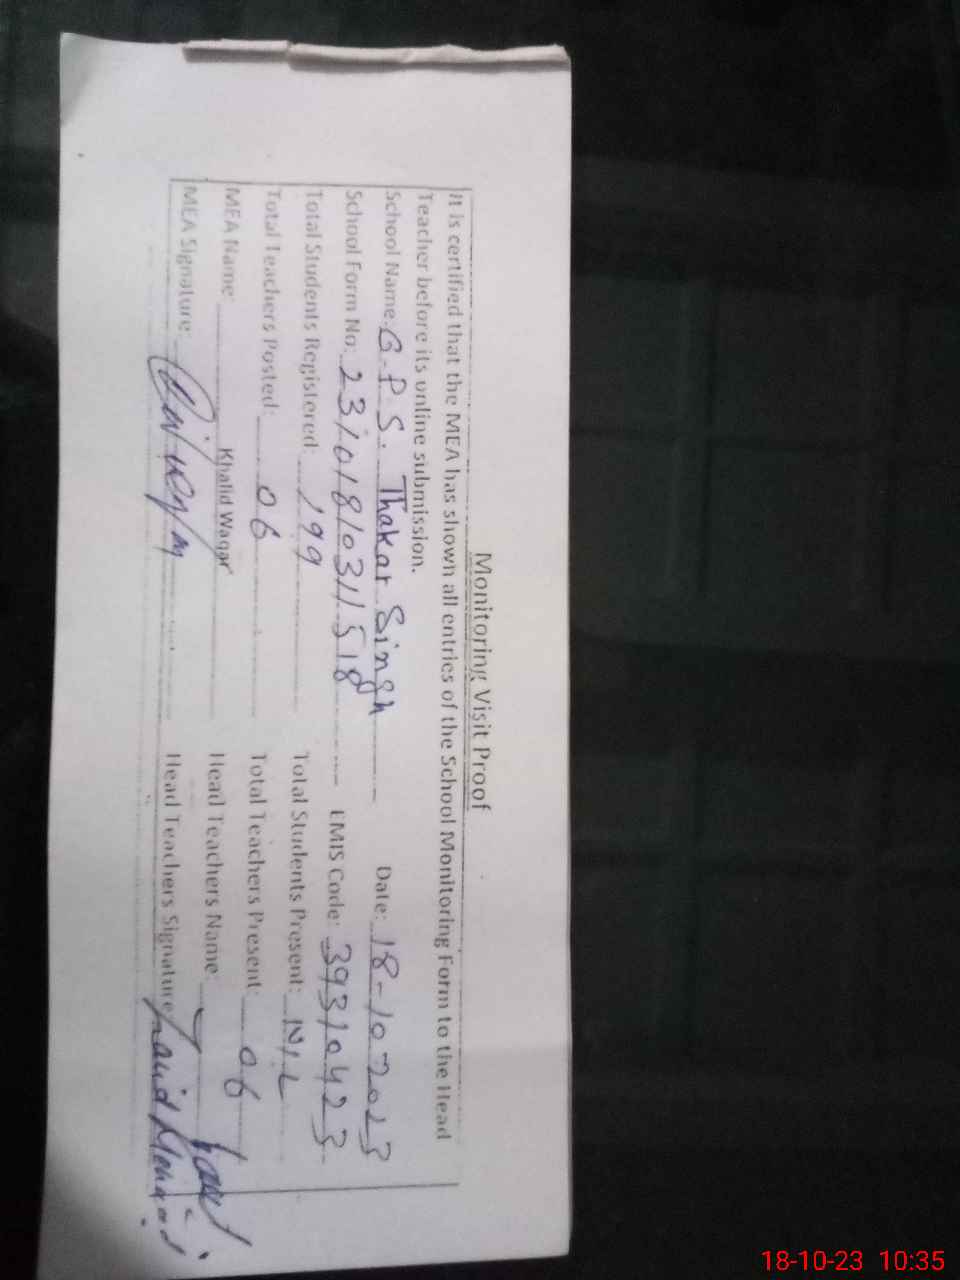 Monitoring Visit Proof
It is certified that the MEA has shown all entries of the School Monitoring Form to the Head
Teacher before its online submission.
School Name: G.P.S. Thakar Singh Date: 18-10-2023
School Form No: 23101810311518 EMIS Code: 39310423
Total Students Registered: 199 Total Students Present: NIL
Total Teachers Posted: 06 Total Teachers Present: 06
MEA Name: Khalid Waqar Head Teachers Name:
MEA Signature: Head Teachers Signature:
18-10-23 10:35